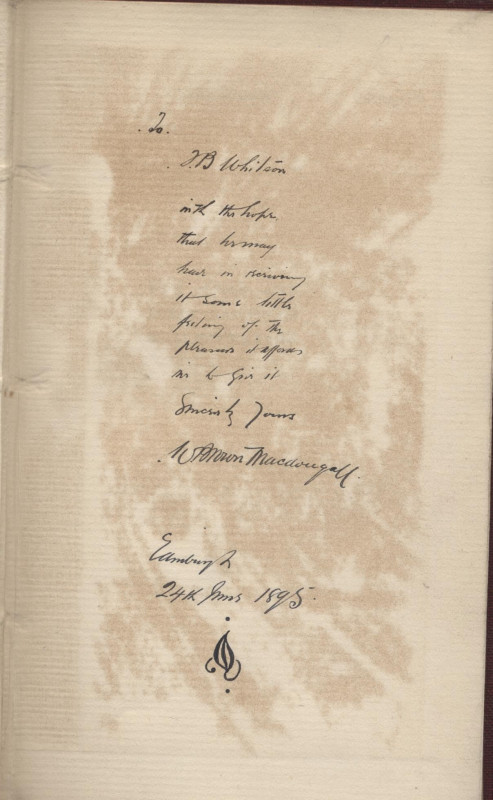 To.
T.B Whitson
with the hope
that he may
have in receiving
it some little
feeling of the
pleasure it affords
me to give it
Sincerely Yours
W Brown Macdougall.
Edinburgh
24th June 1895.